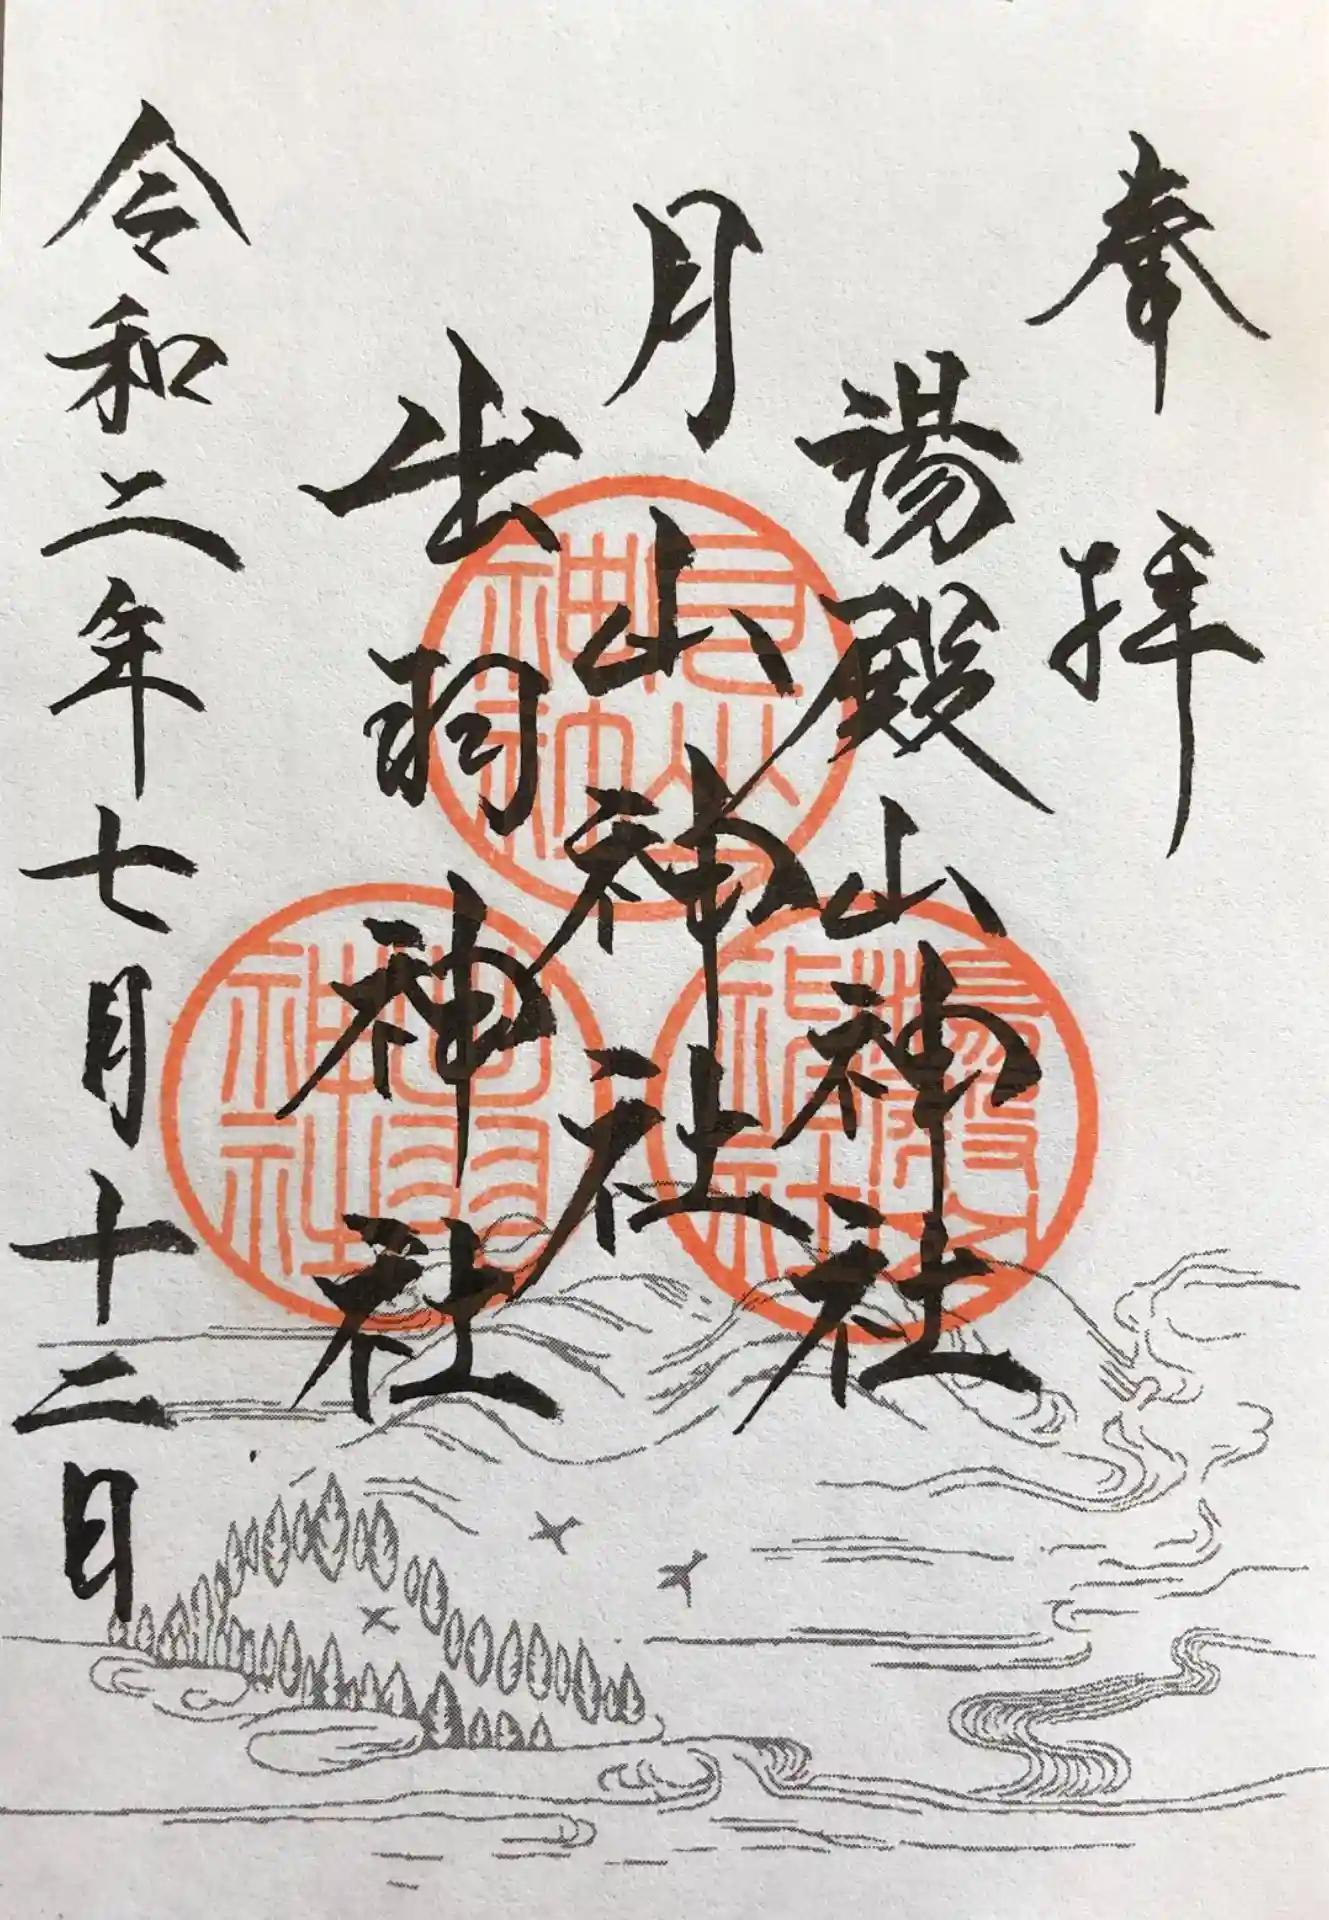 奉拝
湯殿山神社
月山神社
出羽神社
令和二年七月十二日
月山神社
出羽神社